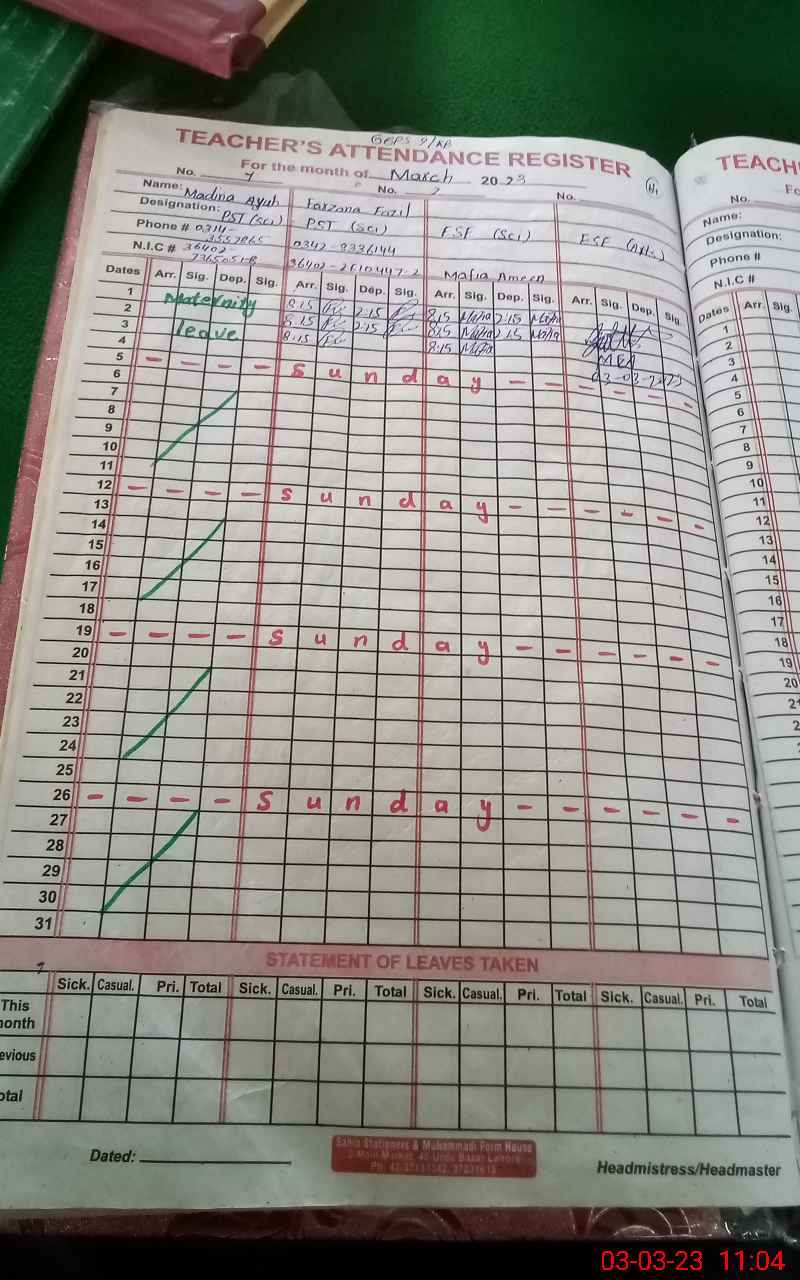 GGPS 9/KB
TEACHER'S ATTENDANCE REGISTER
For the month of March 2023
No. No. 2 No.
Name: Madina Ayub Farzana Fazil
Designation: PST (Sci) PST (Sci) ESE (Sci) ESE (Arts)
Phone # 0314- 0342-8336144
N.I.C # 36402- Mafia Ameen
Dates Arr. Sig. Dep. Sig. Arr. Sig. Dep. Sig. Arr. Sig. Dep. Sig. Arr. Sig. Dep. Sig.
1 Maternity 8:15 2:15 8:15 Mafia 2:15 Mafia
2 leave 8:15 2:15 8:15 Mafia 2:15 Mafia
3 8:15 8:15 Mafia MEA
4 03-03-2023
5 - - - - s u n d a y - - - - - -
6
7
8
9
10
11
12 - - - - s u n d a y - - - - - -
13
14
15
16
17
18
19 - - - - s u n d a y - - - - - -
20
21
22
23
24
25
26 - - - - s u n d a y - - - - - -
27
28
29
30
31
STATEMENT OF LEAVES TAKEN
Sick. Casual. Pri. Total Sick. Casual. Pri. Total Sick. Casual. Pri. Total Sick. Casual. Pri. Total
This
month
evious
otal
Dated:
Headmistress/Headmaster
TEACH
Fo
No.
Name:
Designation:
Phone #
N.I.C #
Dates Arr. Sig.
1
2
3
4
5
6
7
8
9
10
11
12
13
14
15
16
17
18
19
20
03-03-23 11:04